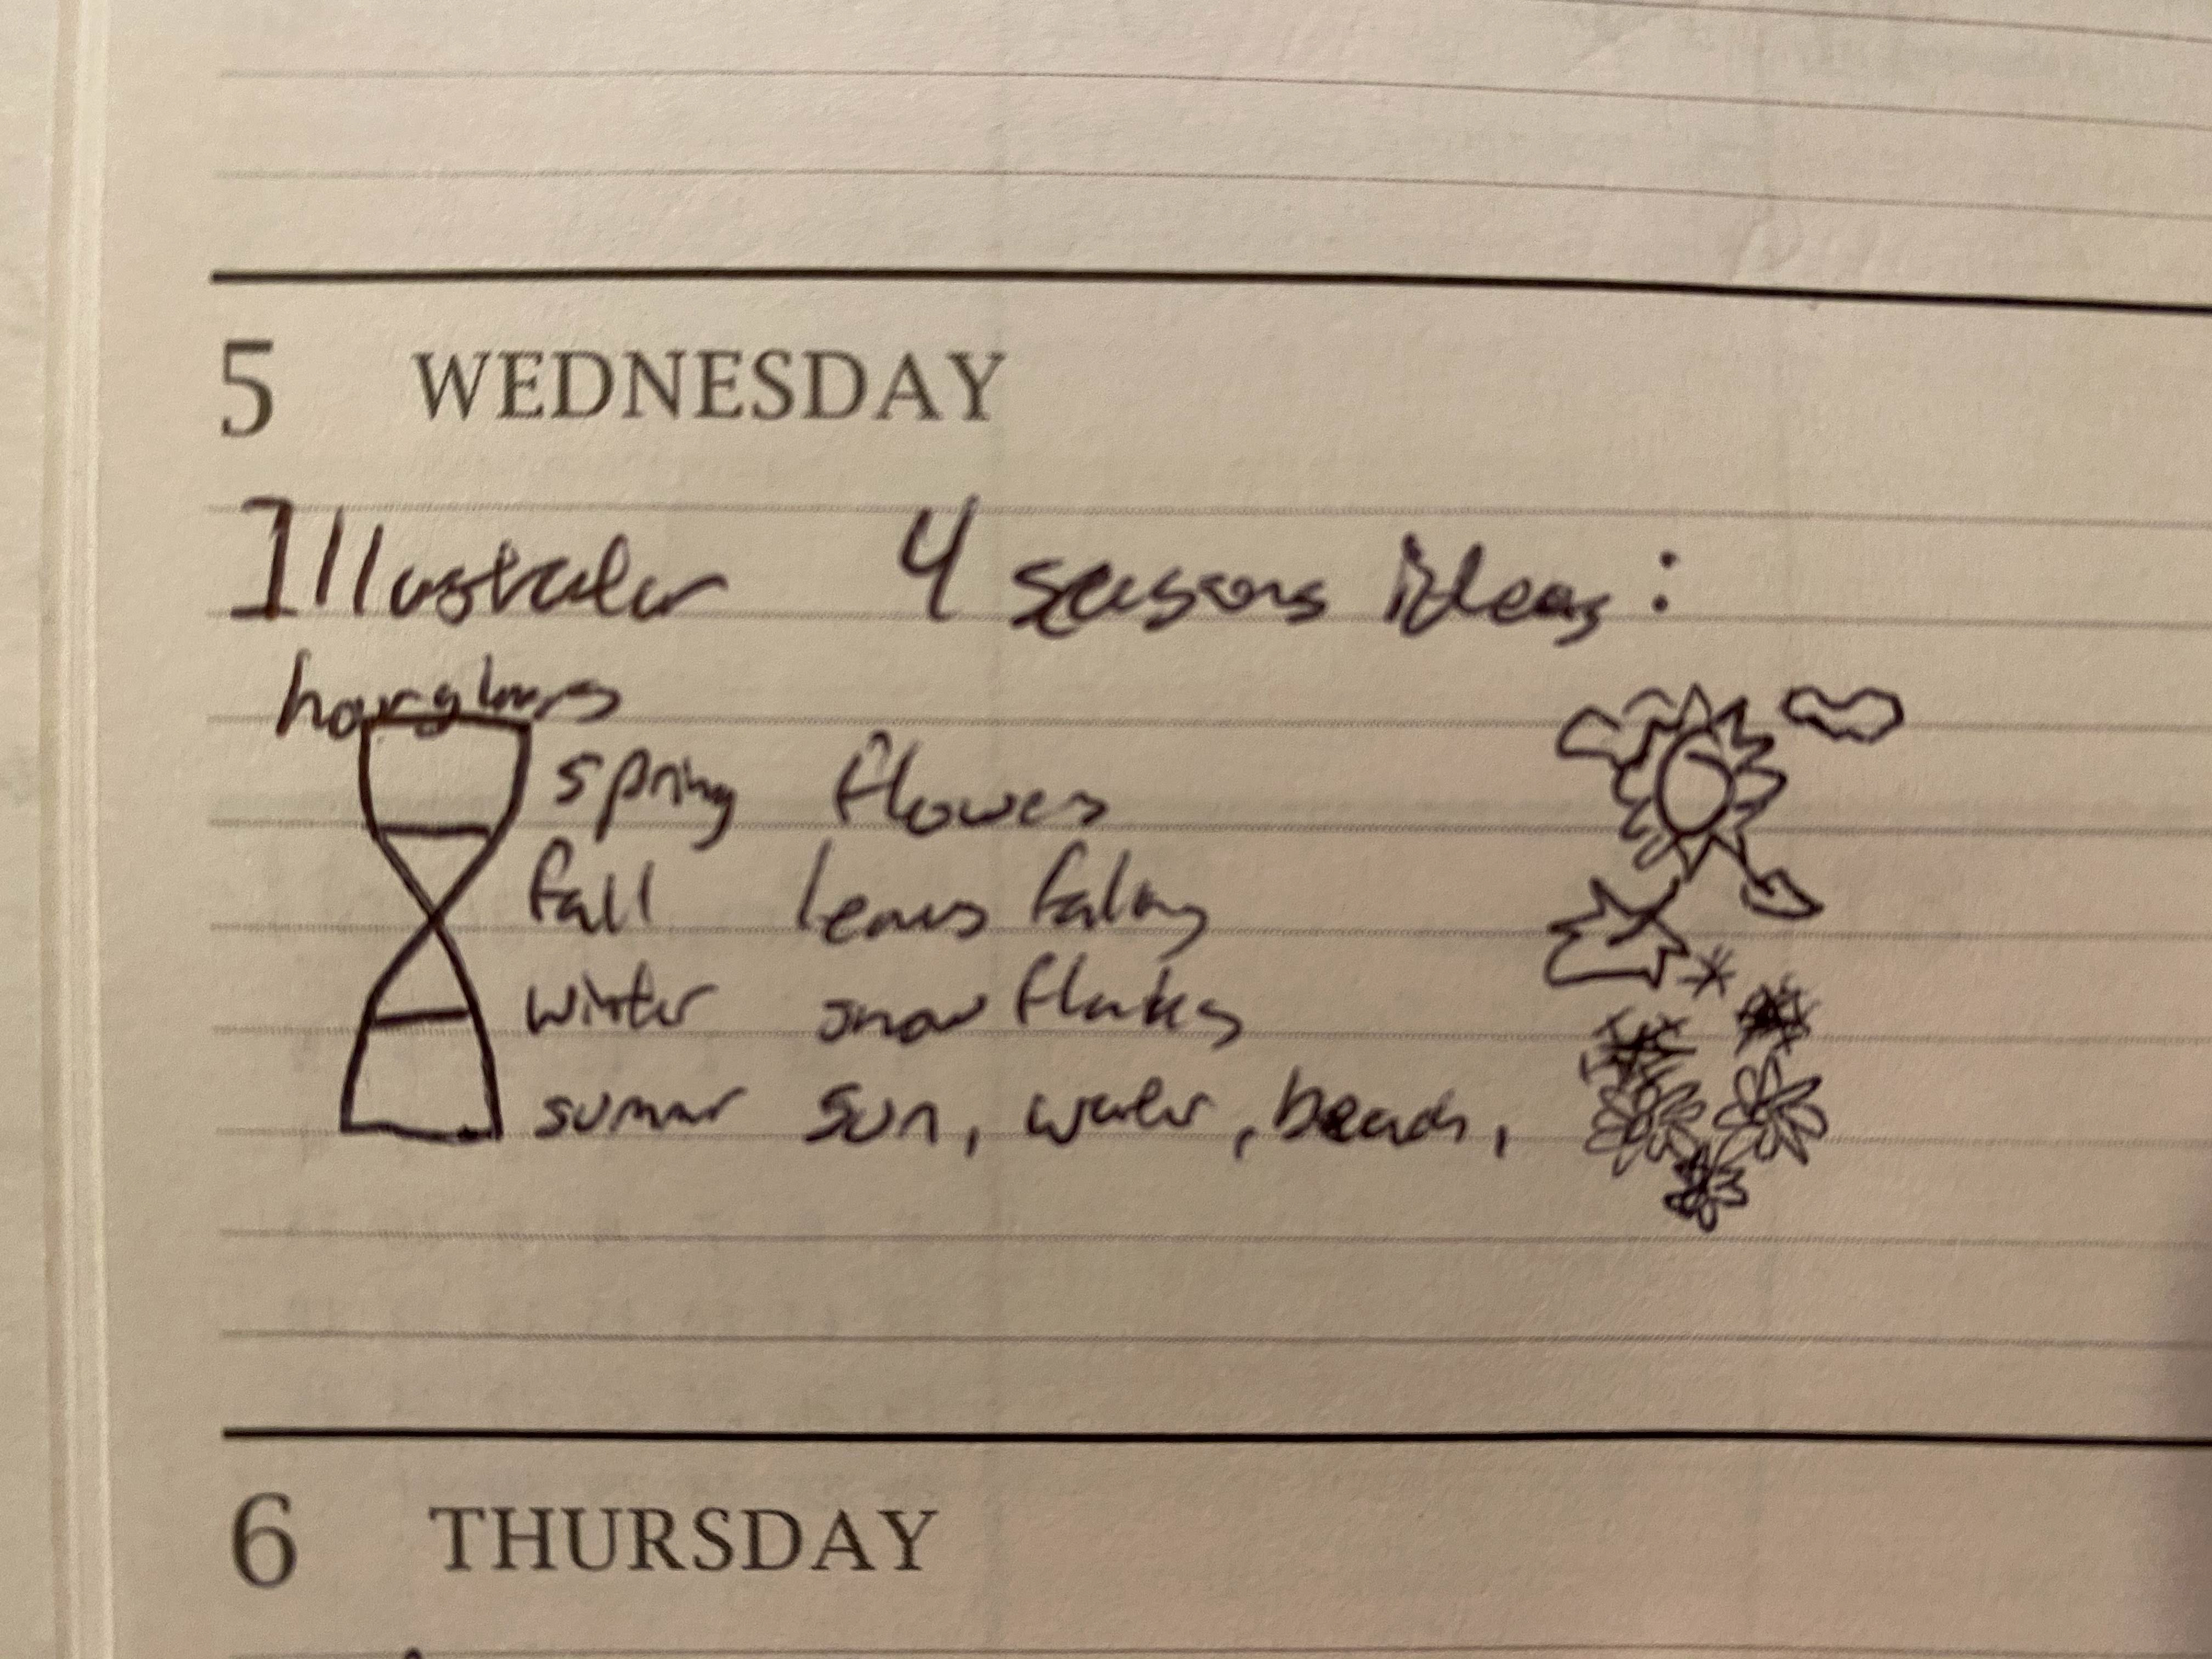 5 WEDNESDAY
Illustrator 4 seasons ideas:
hourglass
spring flowers
fall leaves falling
winter snow flakes
summer sun, water, beach,
6 THURSDAY